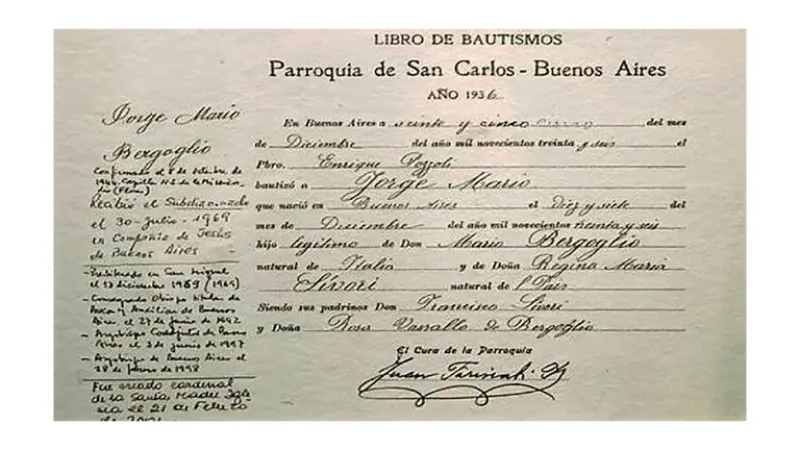 LIBRO DE BAUTISMOS
Parroquia de San Carlos - Buenos Aires
AÑO 1936
En Buenos Aires a veinte y cinco del mes
de Diciembre del año mil novecientos treinta y seis el
Pbro. Enrique Pozzoli
bautizó a Jorge Mario
que nació en Buenos Aires el diez y siete del
mes de Diciembre del año mil novecientos treinta y seis
hijo legítimo de Don Mario Bergoglio
natural de Italia y de Doña Regina Maria
Sívori natural de l País
Siendo sus padrinos Don Francisco Sívori
y Doña Rosa Vassallo de Bergoglio
El Cura de la Parroquia
Juan
Jorge Mario
Bergoglio
Confirmado el 8 de Octubre de
1944 Capilla N.S. de la Misericor-
dia (Flores)
Recibió el Subdiaconado
el 30-Julio-1969
en Compañía de Jesús
de Buenos Aires
- Presbiterado en San Miguel
el 13 diciembre 1969 (1969)
- Consagrado Obispo titular de
Auca y Auxiliar de Buenos
Aires, el 27 de junio de 1992
- Arzobispo Coadjutor de Buenos
Aires el 3 de junio de 1997
- Arzobispo de Buenos Aires el
28 de febrero de 1998
Fue creado cardenal
de la Santa Madre Igle
sia el 21 de Febrero